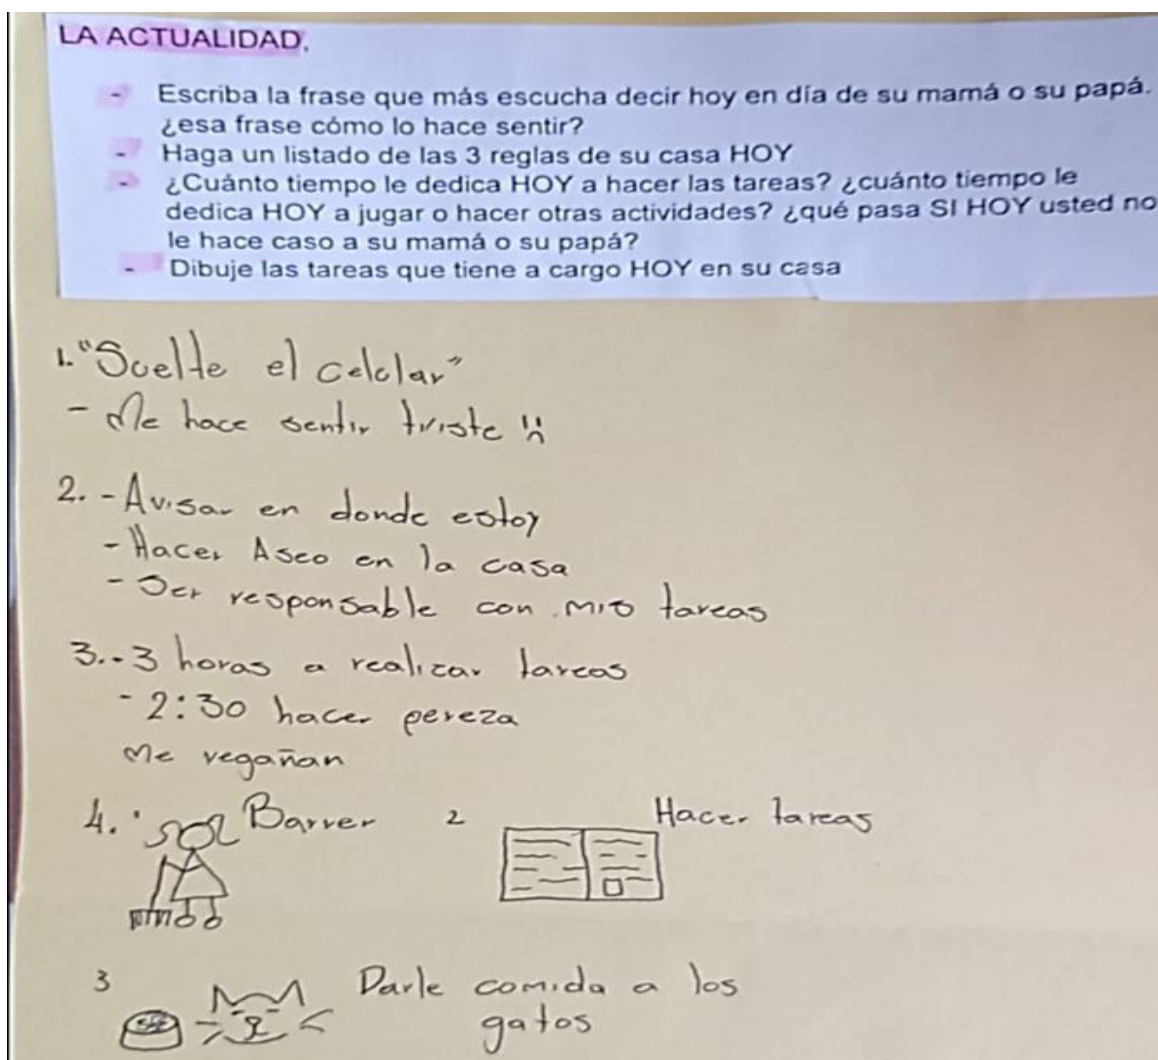 LA ACTUALIDAD.
- Escriba la frase que más escucha decir hoy en día de su mamá o su papá.
¿esa frase cómo lo hace sentir?
- Haga un listado de las 3 reglas de su casa HOY
- ¿Cuánto tiempo le dedica HOY a hacer las tareas? ¿cuánto tiempo le
dedica HOY a jugar o hacer otras actividades? ¿qué pasa SI HOY usted no
le hace caso a su mamá o su papá?
- Dibuje las tareas que tiene a cargo HOY en su casa
1. "Suelte el celular"
- Me hace sentir triste
2. - Avisar en donde estoy
- Hacer Aseo en la casa
- Ser responsable con mis tareas
3. - 3 horas a realizar tareas
- 2:30 hacer pereza
Me regañan
4. Barrer 2 Hacer tareas
3 Darle comida a los
gatos